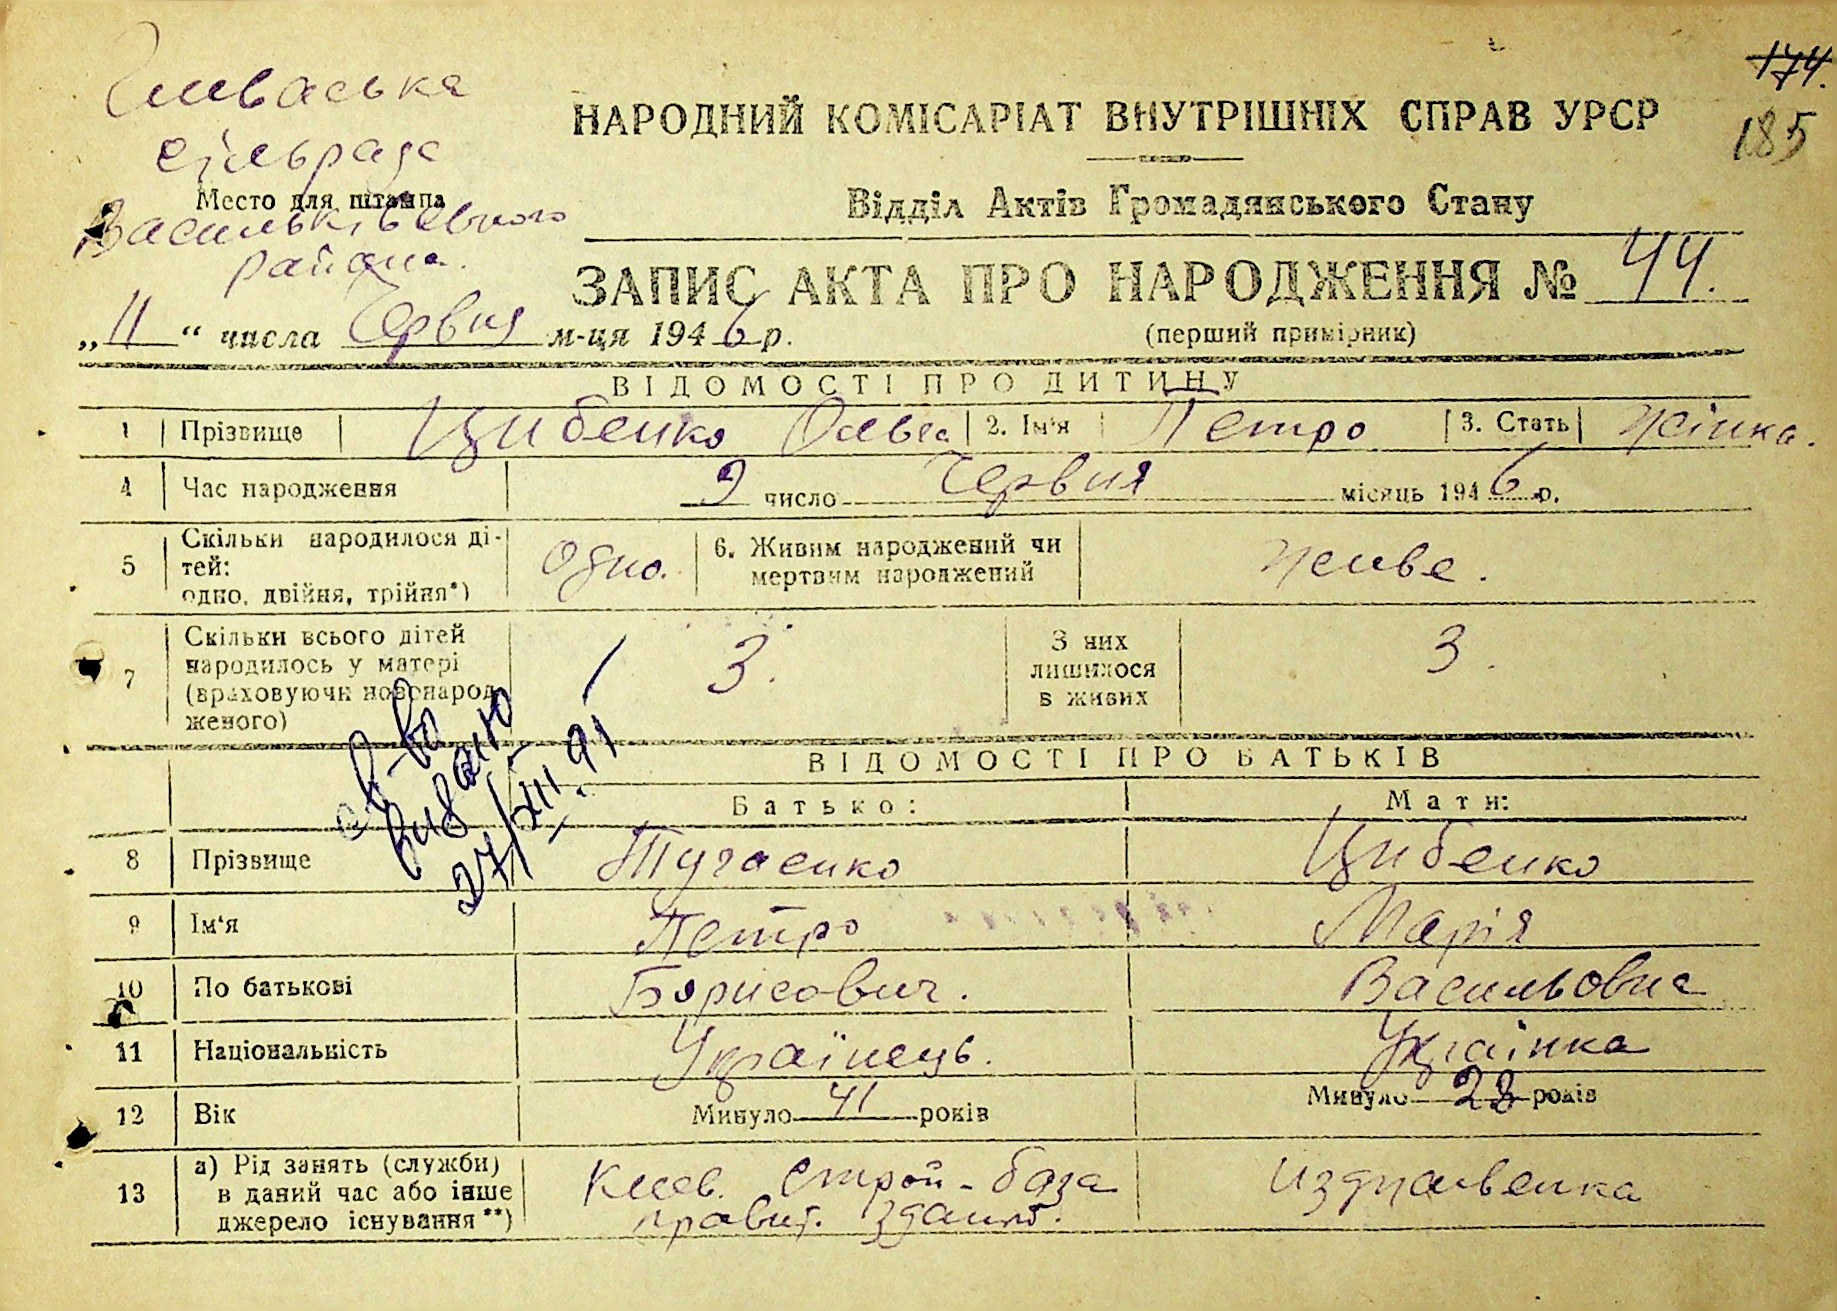 174.
185
сільрада
Место для штампа
Васильківського
района.
НАРОДНИЙ КОМІСАРІАТ ВНУТРІШНІХ СПРАВ УРСР
Відділ Актів Громадянського Стану
ЗАПИС АКТА ПРО НАРОДЖЕННЯ № 44.
(перший примірник)
„ 11 “ числа Червня м-ця 1946 р.
ВІДОМОСТІ ПРО ДИТИНУ
1 Прізвище Цибенко Ольга 2. Ім'я Петро 3. Стать жінка.
4 Час народження 9 число Червня місяць 1946 р.
5 Скільки народилося ді-
тей:
одно, двійня, трійня*) Одно. 6. Живим народжений чи
мертвим народжений живе.
7 Скільки всього дітей
народилось у матері
(враховуючи новонарод-
женого) 3. З них
лишилося
в живих 3.
с-во
видано
27/XII 91
ВІДОМОСТІ ПРО БАТЬКІВ
Батько: Мати:
8 Прізвище Цибенко
9 Ім'я Петро Марія
10 По батькові Борисович. Васильовна
11 Національність Українець. Українка
12 Вік Минуло 41 років Минуло 28 років
13 а) Рід занять (служби)
в даний час або інше
джерело існування**) Киев. Строй-база
правит. здан. издивенка